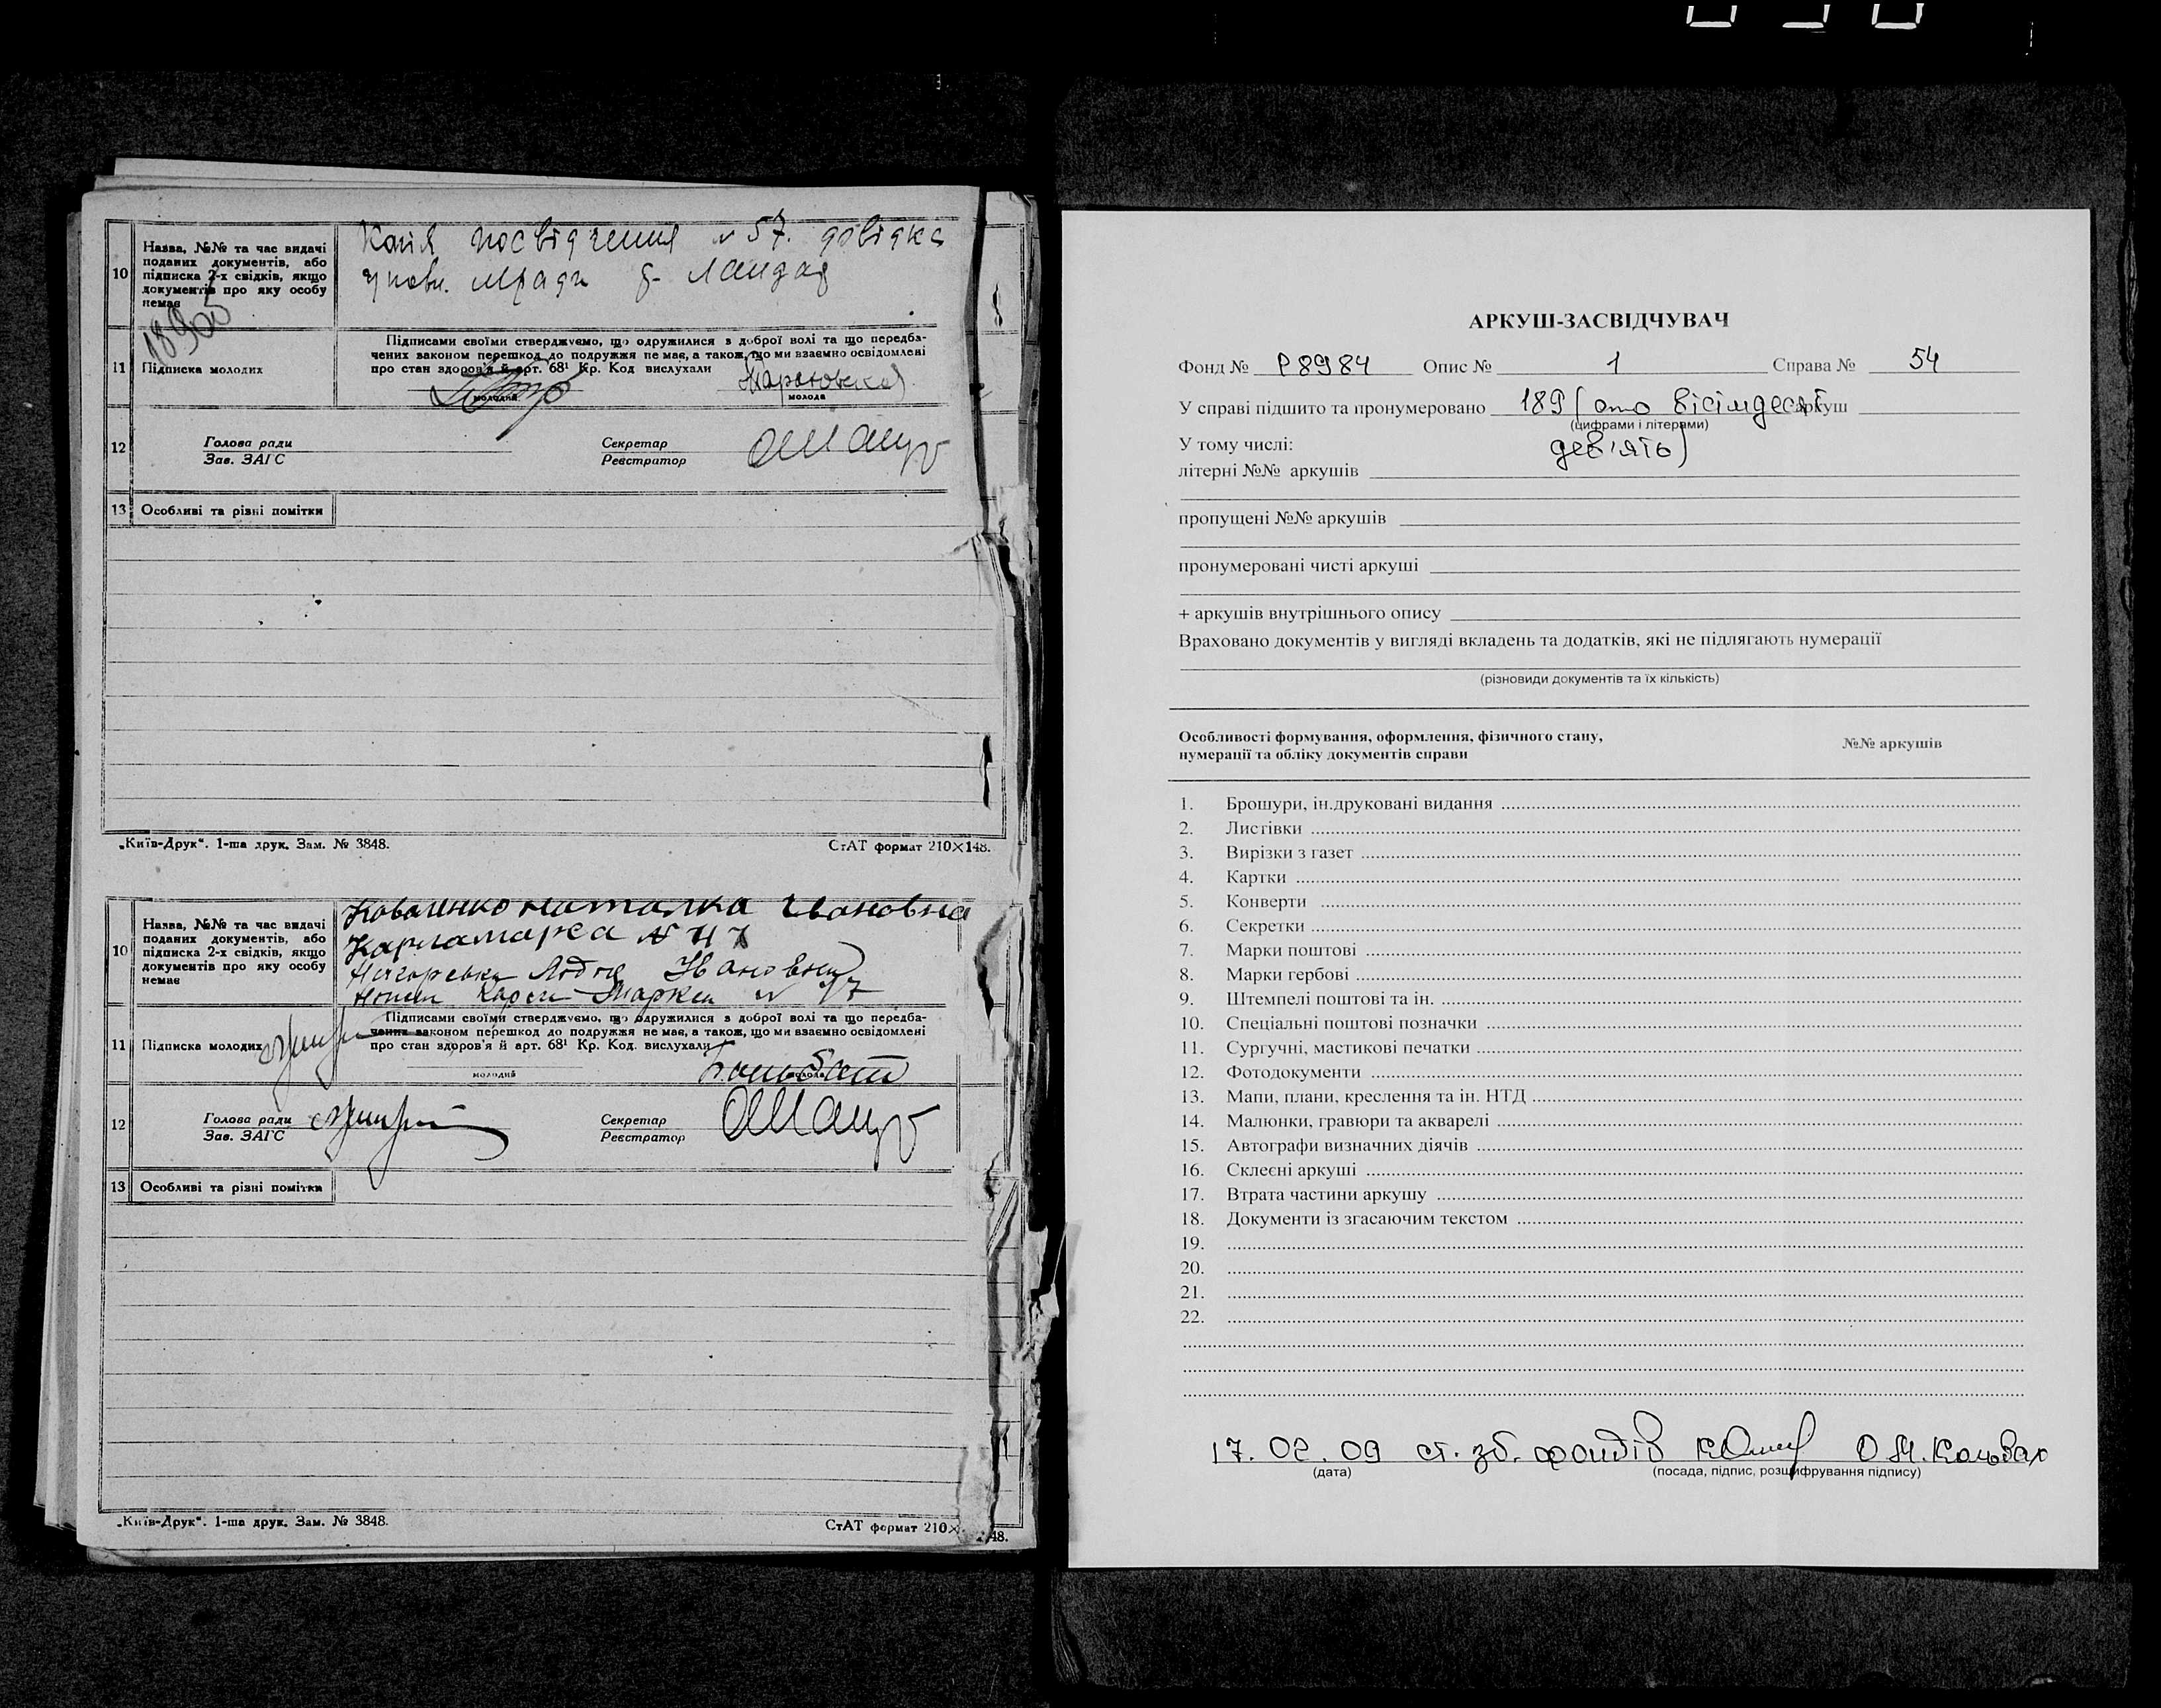 10
Назва, №№ та час видачі
поданих документів, або
підписка 2-х свідків, якщо
документів про яку особу
немає
Копія посвідчення № 57. довідка
18900
11
Підписка молодих
Підписами своїми стверджуємо, що одружилися з доброї волі та що передба-
чених законом перешкод до подружжя не має, а також, що ми взаємно освідомлені
про стан здоров'я й арт. 68¹ Кр. Код вислухали
молодий
молода
12
Голова ради
Зав. ЗАГС
Секретар
Реєстратор
13
Особливі та різні помітки
„Київ-Друк“. 1-ша друк. Зам. № 3848.
СтАТ формат 210×148.
10
Назва, №№ та час видачі
поданих документів, або
підписка 2-х свідків, якщо
документів про яку особу
немає
Коваленко Наталка Івановна
Карламаркса №
Івановна
Карла Маркса №
11
Підписка молодих
Підписами своїми стверджуємо, що одружилися з доброї волі та що передба-
чених законом перешкод до подружжя не має, а також, що ми взаємно освідомлені
про стан здоров'я й арт. 68¹ Кр. Код. вислухали
молодий
молода
12
Голова ради
Зав. ЗАГС
Секретар
Реєстратор
13
Особливі та різні помітки
„Київ-Друк“. 1-ша друк. Зам. № 3848.
СтАТ формат 210×
48.
АРКУШ-ЗАСВІДЧУВАЧ
Фонд № Р8984 Опис № 1 Справа № 54
У справі підшито та пронумеровано 189 (сто вісімдесят аркуш
(цифрами і літерами)
У тому числі: дев'ять)
літерні №№ аркушів
пропущені №№ аркушів
пронумеровані чисті аркуші
+ аркушів внутрішнього опису
Враховано документів у вигляді вкладень та додатків, які не підлягають нумерації
(різновиди документів та їх кількість)
Особливості формування, оформлення, фізичного стану,
нумерації та обліку документів справи
№№ аркушів
1. Брошури, ін.друковані видання
2. Листівки
3. Вирізки з газет
4. Картки
5. Конверти
6. Секретки
7. Марки поштові
8. Марки гербові
9. Штемпелі поштові та ін.
10. Спеціальні поштові позначки
11. Сургучні, мастикові печатки
12. Фотодокументи
13. Мапи, плани, креслення та ін. НТД
14. Малюнки, гравюри та акварелі
15. Автографи визначних діячів
16. Склеєні аркуші
17. Втрата частини аркушу
18. Документи із згасаючим текстом
19.
20.
21.
22.
17.02.09 ст. зб. фондів
(дата)
(посада, підпис, розшифрування підпису)